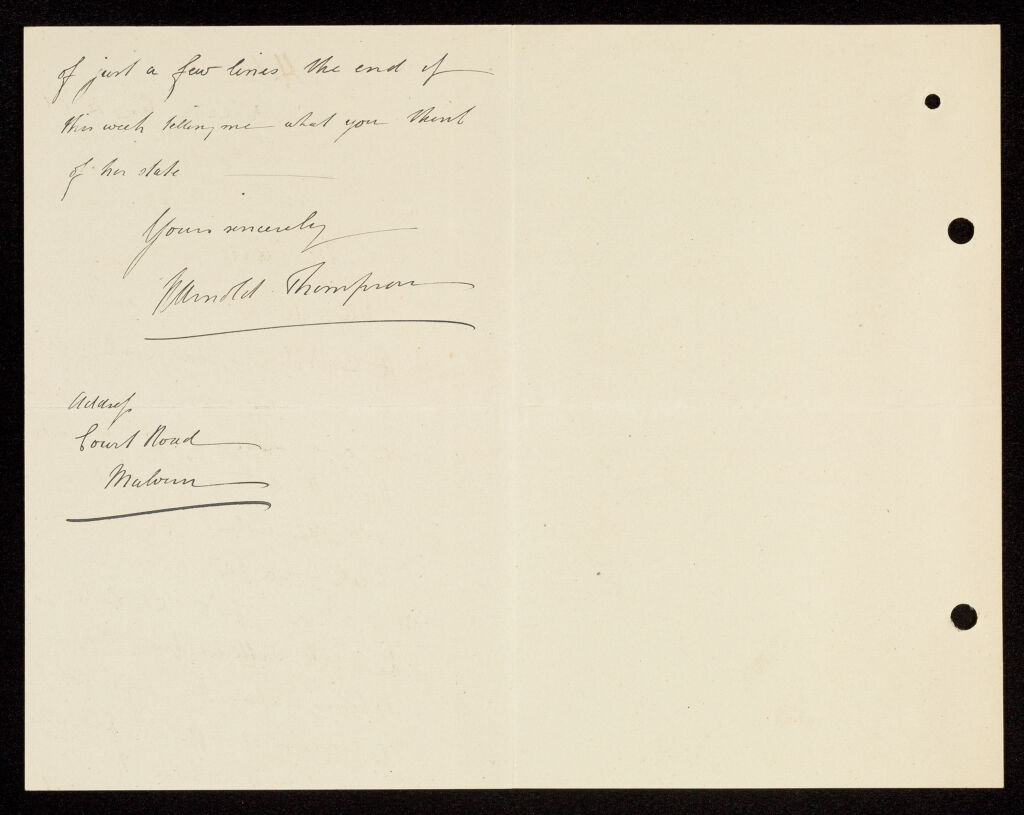 of just a few lines the end of
this week telling me what you think
of her state
Yours sincerely
Arnold Thompson
Address
Court Road
Malvern